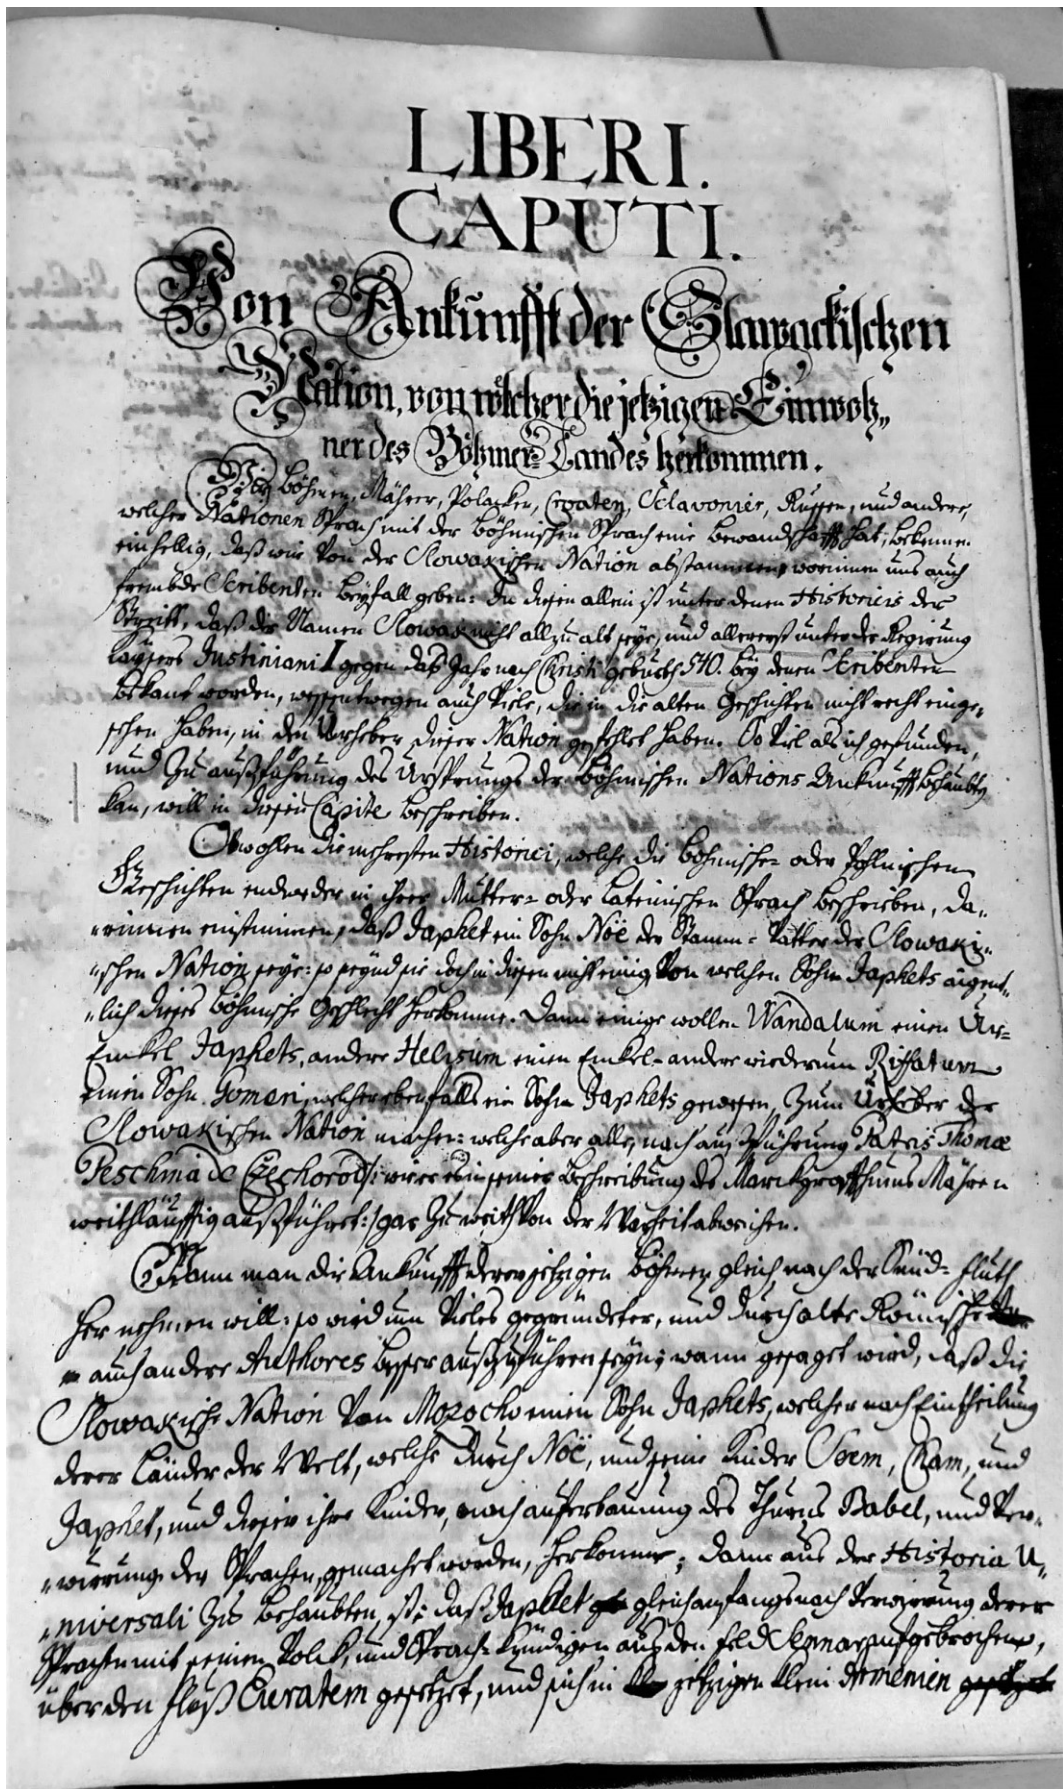 LIBER I.
CAPUT I.
Von Ankunfft der Slawackischen
Nation, von welcher die jetzigen Einwoh„
ner des Böhmer=Landes herkommen.
Wir Böhmen, Mährer, Polacken, Croaten, Sclavonier, Russen, und andere,
welcher Nationen Sprach mit der Böhmischen Sprach eine Bewandschafft hat, bekennen
einhellig, daß wir von der Slowakischen Nation abstammen, worinnen uns auch
frembde Scribenten beyfall geben: In diesen allein ist unter denen Historicis der
Streitt, daß der Namen Slowak nicht allzu alt seye, und allererst unter der Regierung
Kaysers Justiniani I gegen das Jahr nach Christi geburth 540. bey denen Scribenten
bekant worden, wessentwegen auch viele, die in die alten Geschichten nicht recht einge„
sehen haben, in den Urheber dieser Nation gefehlet haben. So viel als ich gefunden,
und zu außführung des Ursprungs der Böhmischen Nations Ankunfft behaubten
kan, will in diesen Capite beschreiben.
Obwohlen die mehresten Historici, welche die Böhmische= oder Pohlnischen
Geschichten entweder in ihrer Mutter= oder Lateinischen Sprach beschrieben, da„
„rinnen einstimmen, daß Japhet ein Sohn Nöe der Stamm=Vatter der Slowaki„
„schen Nation seye: so seynd sie doch in diesen nicht einig, von welchen Sohn Japhets aigent„
„lich dieses Böhmische Geschlecht herkomme. Dann einige wollen Wandalum einen Ur=
Enckel Japhets, andere Helisum einen Enckel= andere wiederum Riffatum
einen Sohn Gomeri, welcher ebenfalls ein Sohn Japhets gewesen, zum Urheber der
Slowakischen Nation machen: welche aber alle, nach außführung Patris Thomæ
Peschina de Czechorod /: wie er es in seiner Beschreibung des Marckgraffthums Mähren
weithläuffig außführet :/ gar zu weith von der Warheit abweichen.
Wann man die Ankunfft derer jetzigen Böhmen gleich nach der Sünd=fluth
her nehmen will: so wird um vieles gegründeter, und durch alte Römische
auch andere Authores besser außzuführen seyn; wann gesaget wird, daß die
Slowakische Nation von Mosocho einen Sohn Japhets, welcher nach Eintheilung
derer Länder der Welt, welche durch Nöe, und seine Kinder Seem, Cham, und
Japhet, und dieser ihre Kinder, nach auferbauung des Thurns Babel, und Ver„
„wirrung der Sprachen, gemachet worden, herkomme; dann aus der Historia U„
„niversali zu behaubten, ist; daß Japhet gleich anfangs nach verwirrung derer
Sprachen mit seinen Volck, und Sprach=Kündigen aus den feld Sennar aufgebrochen,
über den fluß Euratem gesetzet, und sich in jetzigen klein Armenien